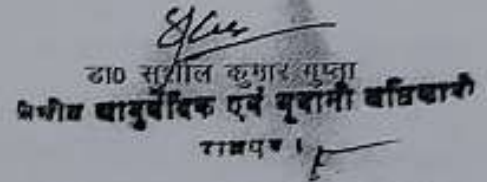 डा0 सुशील कुमार गुप्ता
क्षेत्रीय आयुर्वेदिक एवं यूनानी अधिकारी
रामपुर ।